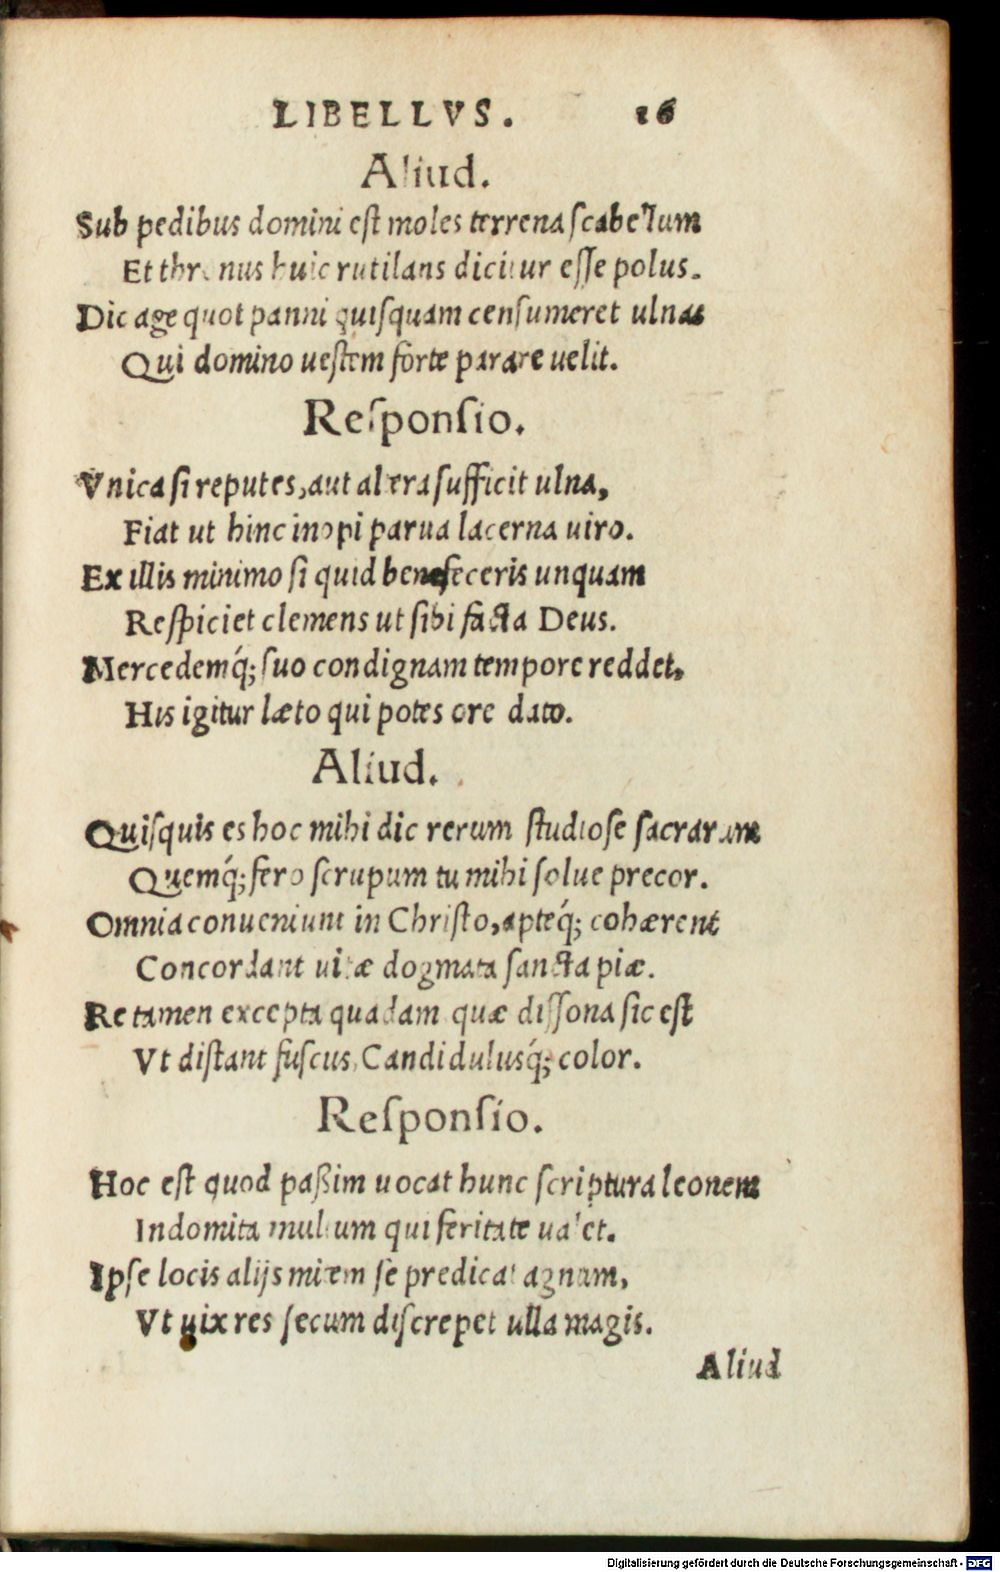 LIBELLVS. 16
Aliud.
Sub pedibus domini eſt moles terrena ſcabellum
Et thronus huic rutilans dicitur eſſe polus.
Dic age quot panni quiſquam cenſumeret ulnas
Qui domino ueſtem forte parare uelit.
Reſponſio.
Vnica ſi reputes, aut altera ſufficit ulna,
Fiat ut hinc inopi parua lacerna uiro.
Ex illis minimo ſi quid benefeceris unquam
Reſpiciet clemens ut ſibi facta Deus.
Mercedemq́; ſuo condignam tempore reddet,
His igitur læto qui potes ore dato.
Aliud.
Quiſquis es hoc mihi dic rerum ſtudioſe ſacrarum
Quemq́; fero ſcrupum tu mihi ſolue precor.
Omnia conueniunt in Chriſto, apteq́; cohærent
Concordant uitæ dogmata ſancta piæ.
Re tamen excepta quadam quæ diſſona ſic eſt
Vt diſtant fuſcus, Candidulusq́; color.
Reſponſio.
Hoc eſt quod paßim uocat hunc ſcriptura leonem
Indomita multum qui feritate ualet.
Ipſe locis alijs mitem ſe predicat agnum,
Vt uix res ſecum diſcrepet ulla magis.
Aliud
Digitalisierung gefördert durch die Deutsche Forschungsgemeinschaft - DFG